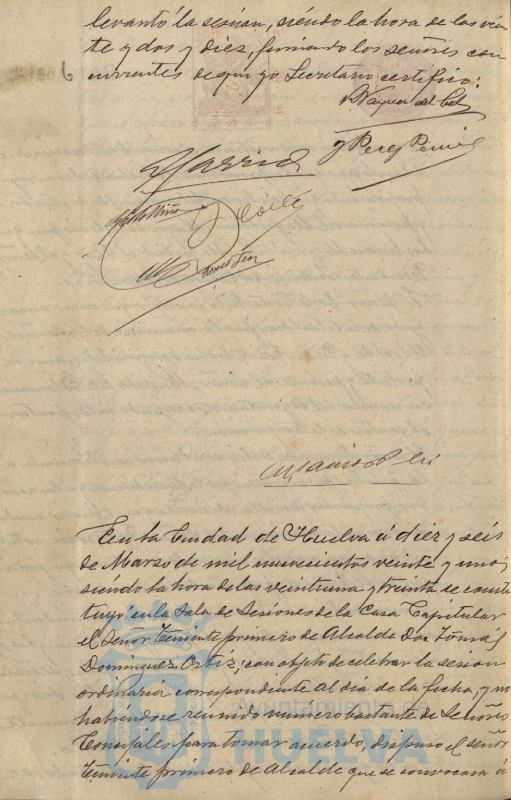 levantó la sesión, siendo la hora de las vein
te y dos y diez, firmando los señores con
currentes de que yo Secretario certifico:
6
Garrido
J Perez
En la Ciudad de Huelva á diez y seis
de Marzo de mil novecientos veinte y uno;
siendo la hora de las veintiuna y treinta se consti
tuyó en la Sala de Sesiones de la Casa Capitular
el Señor Teniente primero de Alcalde Don Tomás
Dominguez Ortiz; con objeto de celebrar la sesion
ordinaria correspondiente al dia de la fecha, y no
habiendose reunido número bastante de Señores
Concejales para tomar acuerdo, dispuso el señor
Teniente primero de Alcalde que se convocara á
Ayuntamiento de
HUELVA